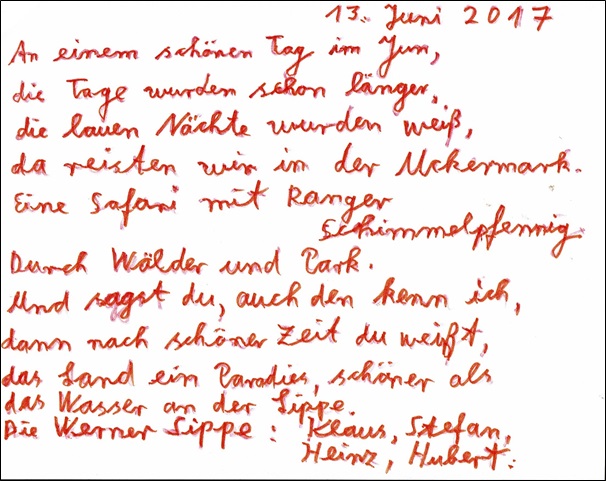 13. Juni 2017
An einem schönen Tag im Jun,
die Tage wurden schon länger,
die lauen Nächte wurden weiß,
da reisten wir in der Uckermark.
Eine Safari mit Ranger
Schimmelpfennig
Durch Wälder und Park.
Und sagst du, auch den kenn ich,
dann nach schöner Zeit du weißt,
das Land ein Paradies, schöner als
das Wasser an der Lippe.
Die Werner Sippe: Klaus, Stefan,
Heinz, Hubert.